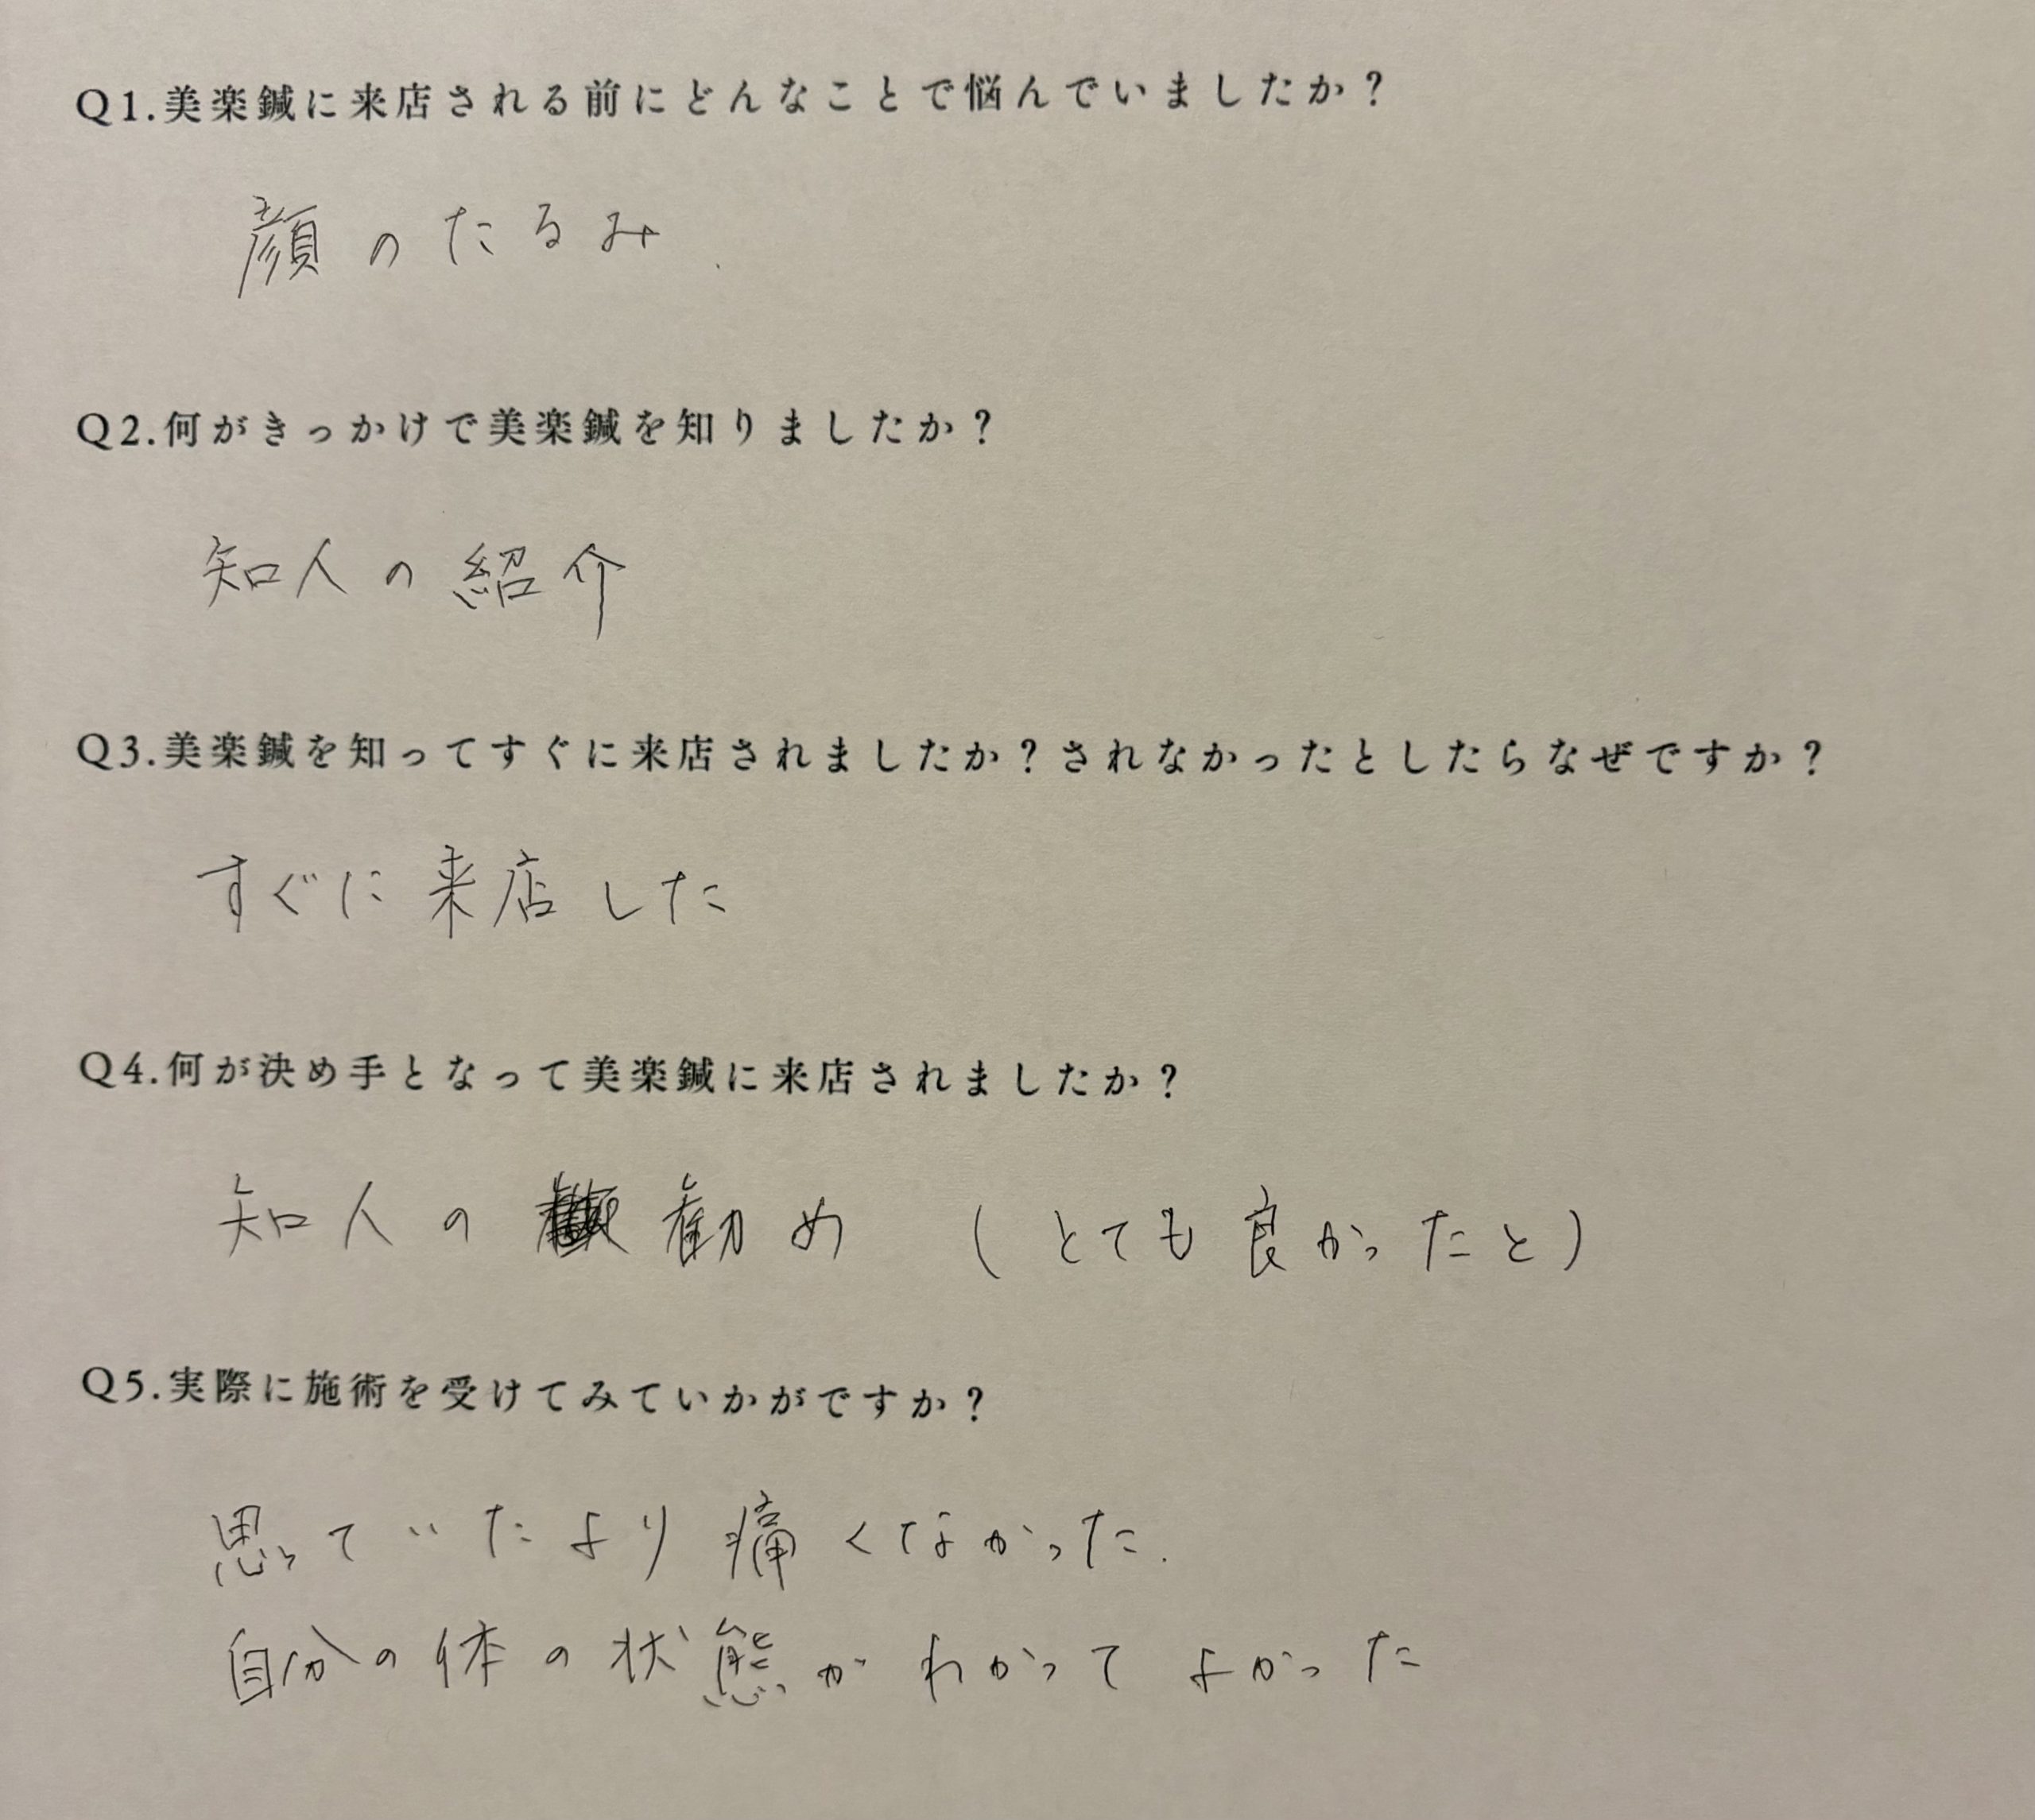 Q1.美楽鍼に来店される前にどんなことで悩んでいましたか？
顔のたるみ
Q2.何がきっかけで美楽鍼を知りましたか？
知人の紹介
Q3.美楽鍼を知ってすぐに来店されましたか？されなかったとしたらなぜですか？
すぐに来店した
Q4.何が決め手となって美楽鍼に来店されましたか？
知人の 勧め （とても良かったと）
Q5.実際に施術を受けてみていかがですか？
思っていたより痛くなかった.
自分の体の状態がわかってよかった